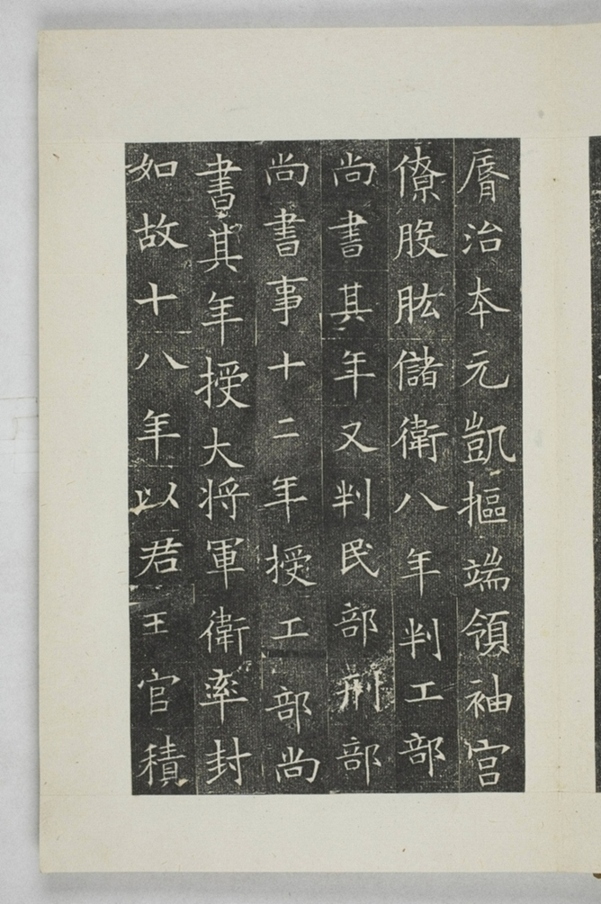 厝治本元凱摳端領袖官
僚股肱儲衛八年判工部
尚書其年又判民部刑部
尚書事十二年授工部尚
書其年授大将軍衛率封
如故十八年以君王官積